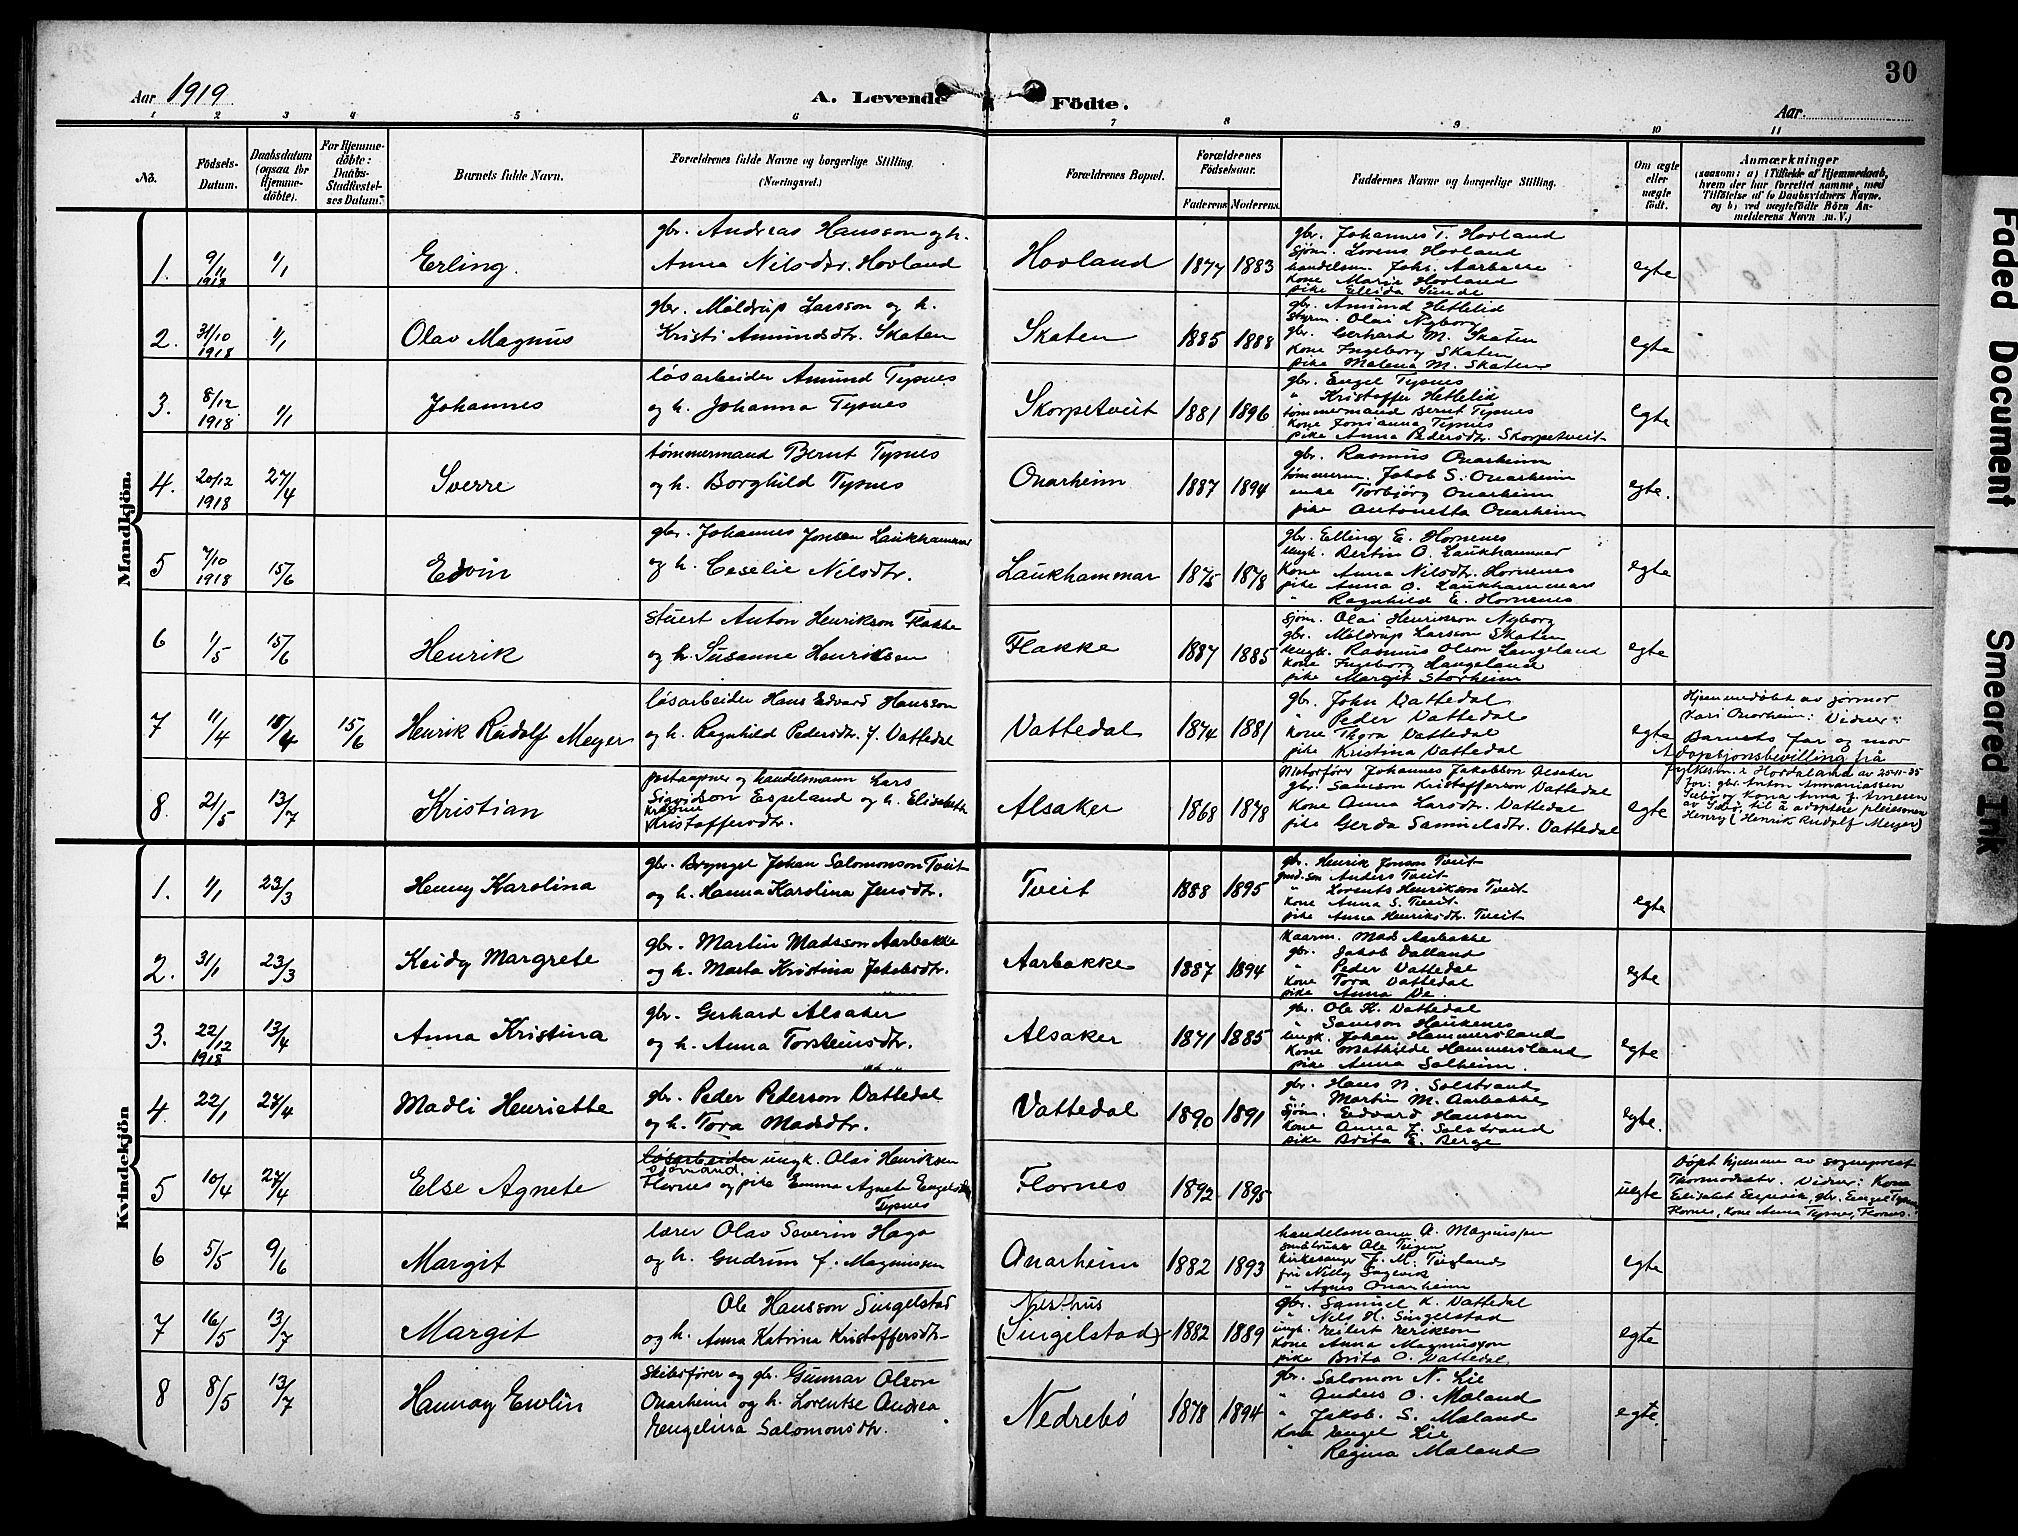 30
Aar 1919
A. Levende Födte.
Aar
1 2 3 4 5 6 7 8 9 10 11
No.
Födsels-Datum.
Daabsdatum (ogsaa for Hjemme-döbte).
For Hjemme-döbte: Daabs-Stadfæstel-ses Datum.
Barnets fulde Navn.
Forældrenes fulde Navne og borgerlige Stilling. (Næringsvei.)
Forældrenes Bopæl.
Forældrenes Födselsaar.
Faderens Moderens
Faddernes Navne og borgerlige Stilling.
Om ægte eller uægte födt.
Anmærkninger
(saasom: a) i Tilfælde af Hjemmedaab,
hvem der har forrettet samme, med
Tilföielse af to Daabsvidners Navne,
og b) ved uægtefödte Börn An-
melderens Navn m. V.)
Mandkjön.
1. 9/11 1918 1/1 Erling.
gbr. Andreas Hansson og h.
Anna Nilsdtr. Hovland
Hovland 1877 1883
gbr. Johannes T. Hovland
sjöm. Lorens Hovland
handelsm. Johs. Aarbakke
kone Marie Hovland
pike Elida Sunde
egte
2. 31/10 1918 1/1 Olav Magnus
gbr. Möldrup Larsson og h.
Kristi Amundsdtr. Skaten
Skaten 1885 1888
gbr. Amund Hetlelid
styrm. Olai Nyborg
gbr. Gerhard M. Skaten
kone Ingeborg Skaten
pike Malena M. Skaten
egte
3. 8/12 1918 1/1 Johannes
løsarbeider Amund Tysnes
og h. Johanna Tysnes
Skorpetveit 1881 1896
gbr. Engel Tysnes
" Kristoffer Hetlelid
tømmermand Bernt Tysnes
kone Jonsanna Tysnes
pike Anna Pedersdtr. Skorpetveit
egte
4. 20/12 1918 27/4 Sverre
tømmermand Bernt Tysnes
og h. Borghild Tysnes
Onarheim 1887 1894
gbr. Rasmus Onarheim
tømmerm. Jakob S. Onarheim
enke Torbjörg Onarheim
pike Antonetta Onarheim
egte.
5 7/10 1918 15/6 Edvin
gbr. Johannes Jonsen Laukhammar
og h. Ceselie Nilsdtr.
Laukhammar 1875 1878
gbr. Elling E. Hornenes
ungk. Bertin O. Laukhammar
kone Anna Nilsdtr. Hornenes
pike Anna O. Laukhammar
" Ragnhild E. Hornenes
egte
6 1/5 15/6 Henrik
stuert Anton Henrikson Flakke
og h. Susanne Henriksen
Flakke 1887 1885
sjöm. Olai Henrikson Nyborg
gbr. Möldrup Larson Skaten
ungk. Rasmus Olson Langeland
kone Ingeborg Langeland
pike Margit Storheim
egte
7 11/4 15/6 Henrik Rudolf Meyer
løsarbeider Hans Edvard Hansson
og h. Ragnhild Pedersdtr. f. Vattedal
Vattedal 1874 1881
gbr. John Vattedal
" Peder Vattedal
kone Thora Vattedal
pike Kristina Vattedal
egte
Hjemmedöbt av jormor
Kari Onarheim: Vidner:
Barnets far og mor
Adopsjonsbevilling frå
fylkesm. i Hordaland av 25-11-35
for gbr. Anton Ananiassen
og kona Anna f. Arnesen
til å adoptere pleiesønen
Henry (Henrik Rudolf Meyer)
8. 21/5 13/7 Kristian
postaapner og handelsmann Lars
Sigvardson Espeland og h. Elisabeth
Kristine
Kristoffersdtr.
Alsaker 1868 1878
Motorfører Johannes Jakobson Alsaker
gbr. Samson Kristofferson Vattedal
kone Anna Larsdtr. Vattedal
pike Gerda Samuelsdtr. Vattedal
egte
Kvindekjön
1. 1/1 23/3 Henny Karolina
gbr. Bryngel Johan Salomonson Tveit
og h. Hanna Karolina Jensdtr.
Tveit 1888 1895
gbr. Henrik Jonson Tveit
grd.søn Anders Tveit
" Lorents Henrikson Tveit
kone Anna S. Tveit
pike Anna Henriksdtr. Tveit
egte
2. 31/1 23/3 Keidy Margrete
gbr. Martin Madsson Aarbakke
og h. Marta Kristina Jakobsdtr.
Aarbakke 1887 1894
kaarm. Mad Aarbakke
gbr. Jakob Dalland
" Peder Vattedal
kone Tora Vattedal
pike Anna De.
egte
3. 22/12 1918 13/4 Anna Kristina
gbr. Gerhard Alsaker
og h. Anna Torsteinsdtr.
Alsaker 1871 1885
gbr. Ole K. Vattedal
" Samson Haukenes
ungk. Johan Hammersland
kone Mathilde Hammersland
pike Anna Solheim.
egte
4 22/1 27/4 Madli Henriette
gbr. Peder Pederson Vattedal
og h. Tora Madsdtr.
Vattedal 1890 1891
gbr. Hans N. Solstrand
" Martin M. Aarbakke
sjöm. Edvard Hansson
kone Anna J. Solstrand
pike Brita E. Berge
egte.
5 10/4 27/4 Else Agnete
løsarbeider ungk. Olai Henriksen
sjömand.
Flornes og pike Emma Agnete Engelsdtr.
Tysnes
Flornes 1892 1895
uegte
Döpt hjemme av sogneprest
Thormodsætr. Vidner: Kone
Elisabet Espevik, gbr. Engel Tysnes
Flornes, kone Anna Tysnes, Flornes.
6 5/5 9/6 Margit
lærer Olav Severin Haga
og h. Gudrun f. Magnussen
Onarheim 1882 1893
handelsmann A. Magnussen
småbruker Ole Teigen
kirkesanger J. M. Tveisland
frk Nelly Sagevik
" Agnes Onarheim
egte
7 16/5 13/7 Margit
Ole Hansson Singelstad
og h. Anna Katrina Kristoffersdtr
Næsthus
(Singelstad) 1882 1889
gbr. Samuel K. Vattedal
" Nils H. Singelstad
ungk. Eilert Erikson
kone Anna Magnusson
pike Brita O. Vattedal.
egte
8 8/5 13/7 Hannay Evelin
Skibsfører og gbr. Gunnar Olson
Onarheim og h. Lorentse Andrea
Engelina Salomonsdtr.
Nedrebø 1878 1894
gbr. Salomon N. Lie
" Anders O. Mæland
" Jakob. S. Mæland
kone Engel Lie
" Regina Mæland
egte.
Faded Document
Smeared Ink